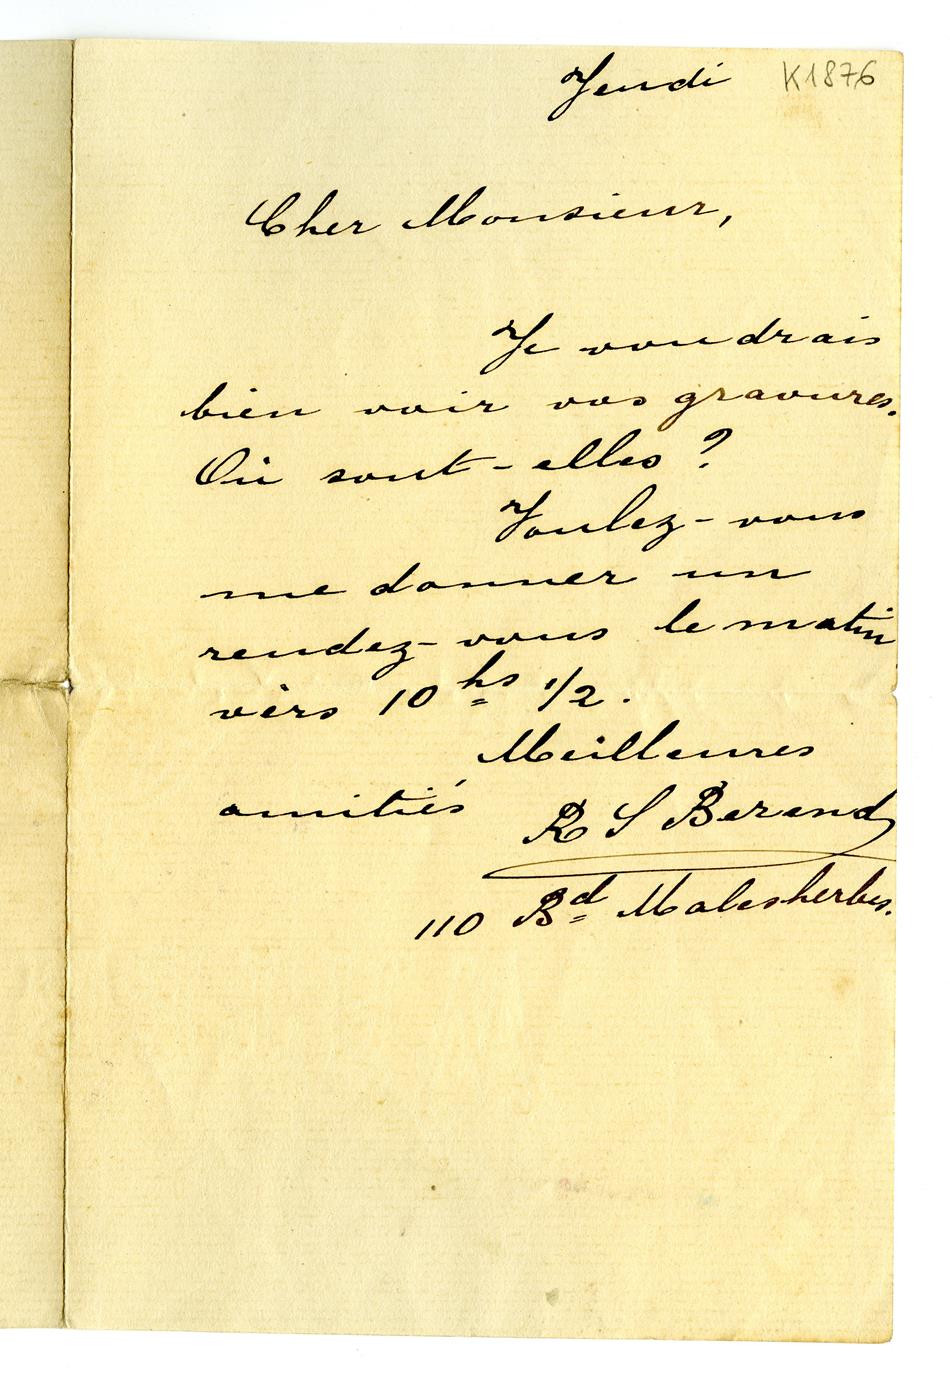 Jeudi K1876
Cher Monsieur,
Je voudrais
bien voir vos gravures.
Où sont-elles ?
Voulez-vous
me donner un
rendez-vous le matin
vèrs 10 hs 1/2.
Meilleures
amitiés R S Berend
110 Bd Malesherbes.